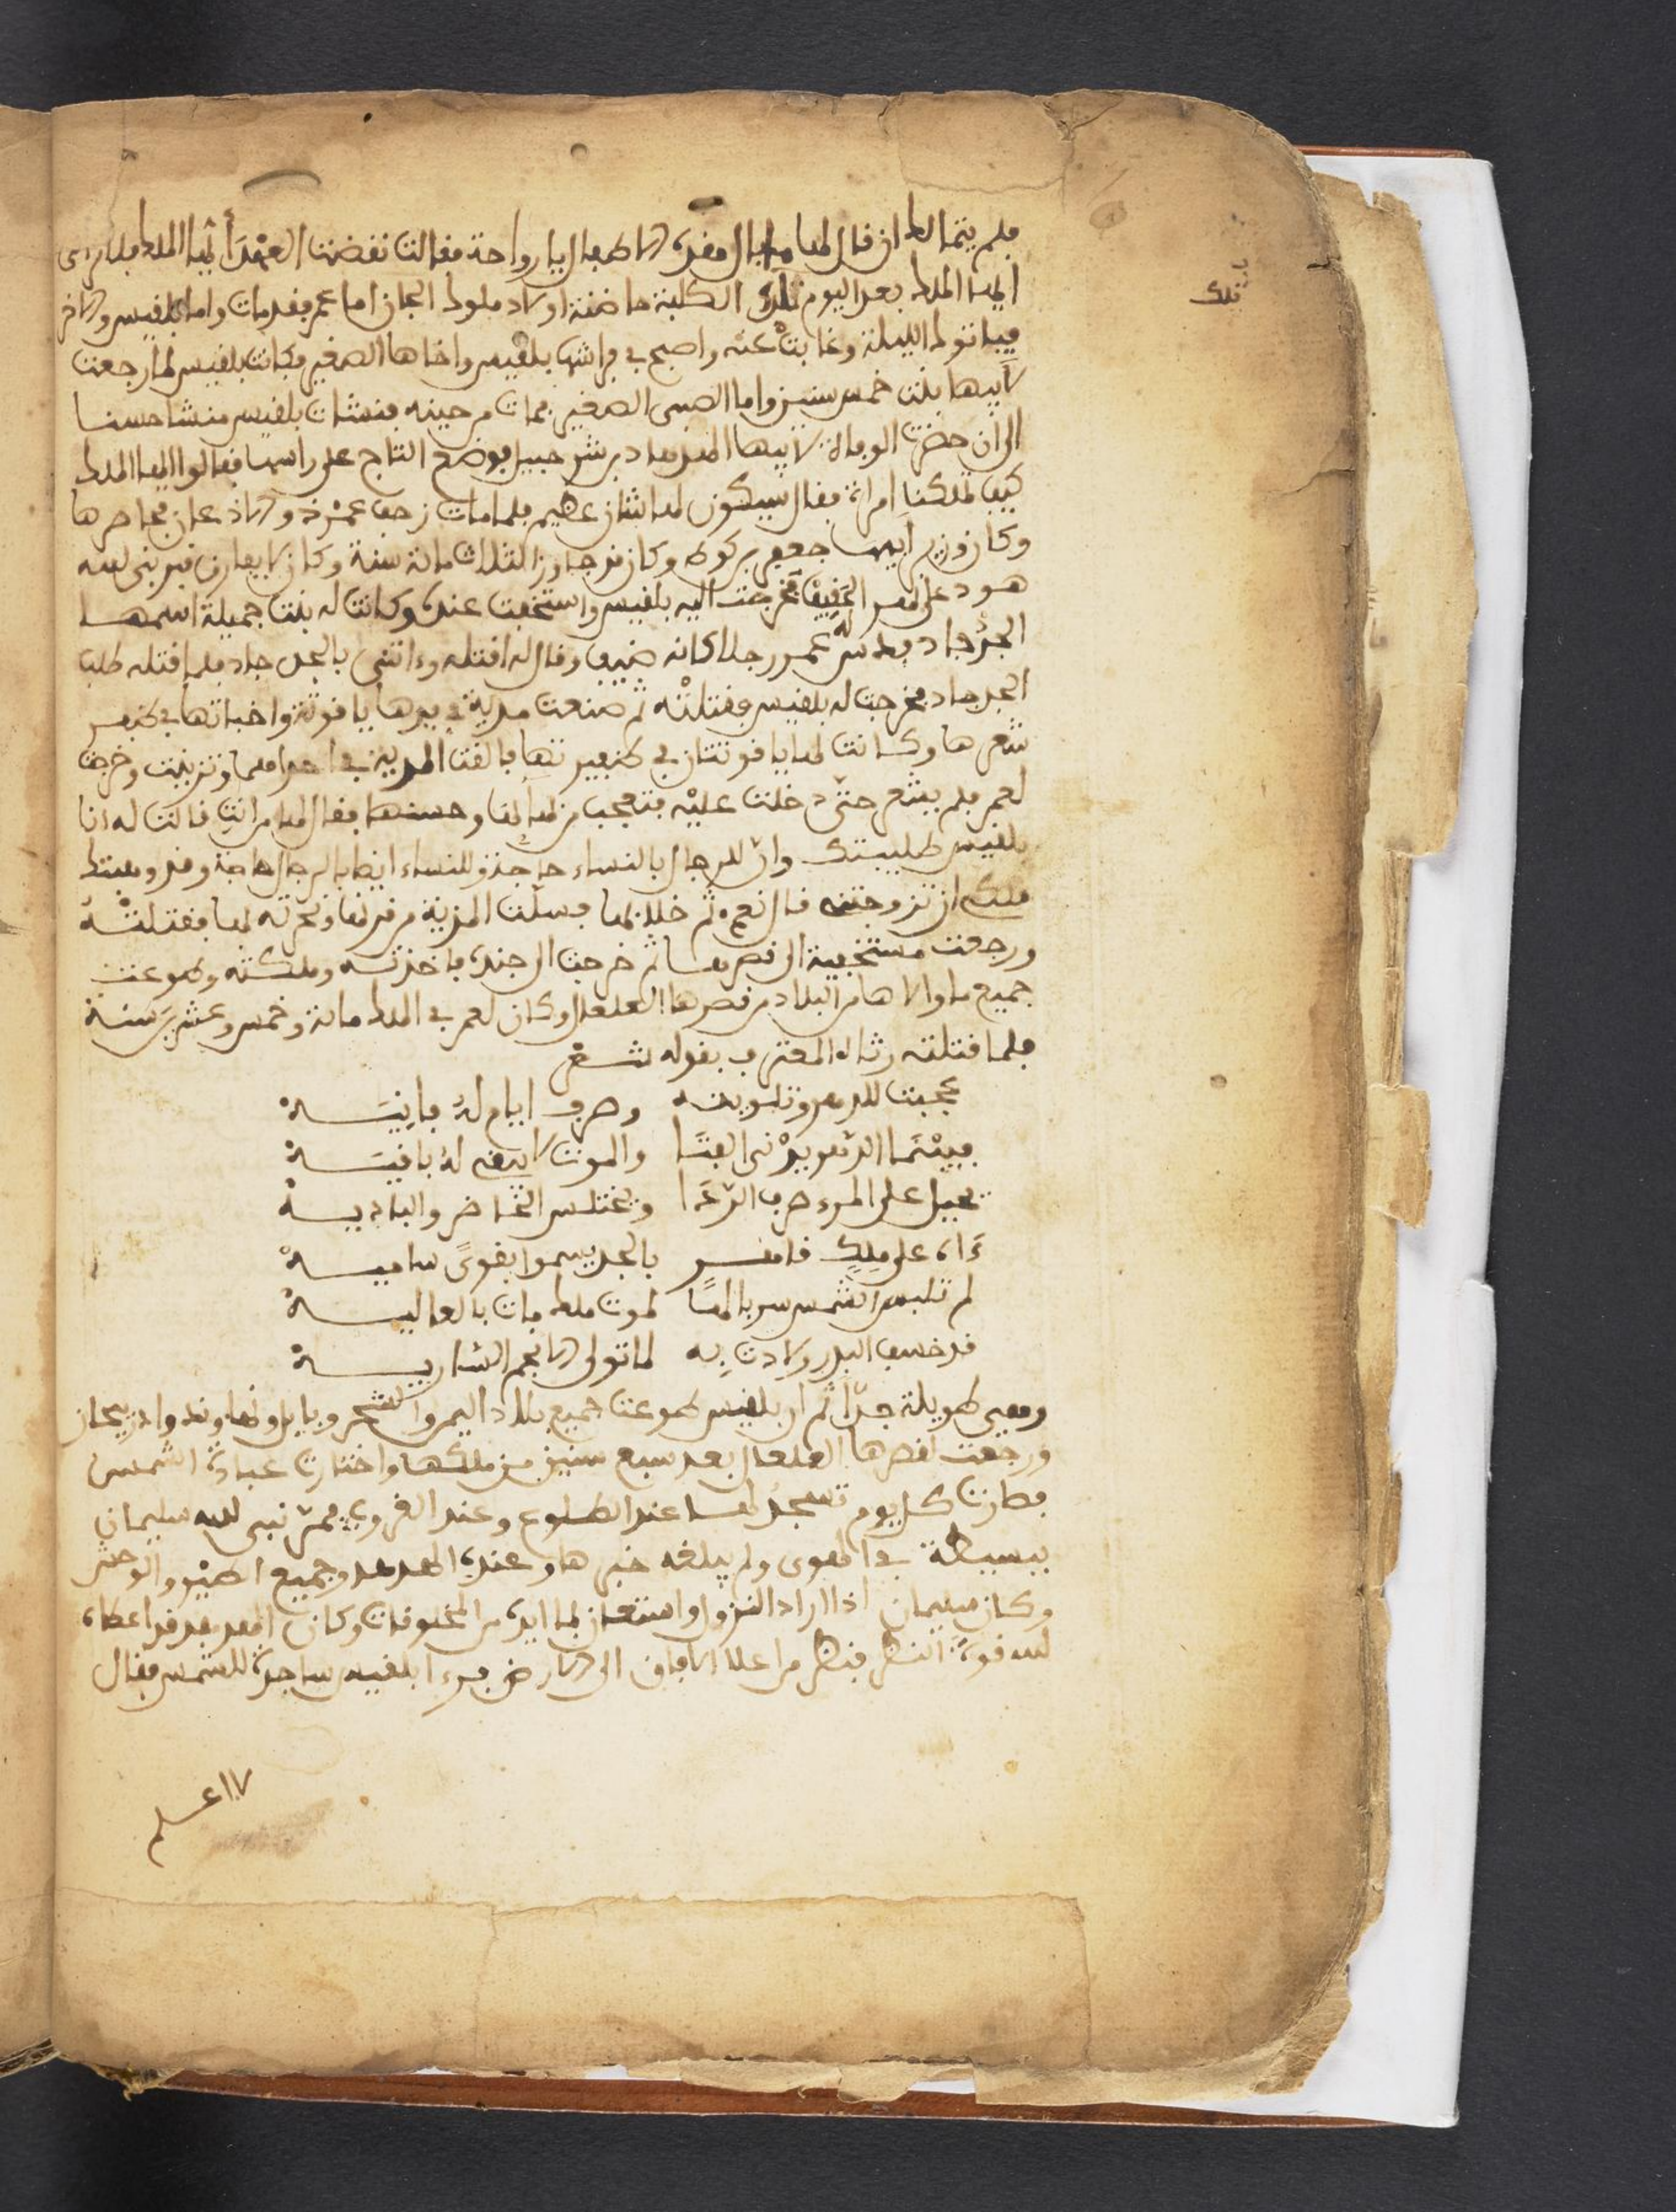 فلم يتمالك ان قال لها ما بال مقدم الاطفال يا رواحة فقالت نقضت العهد أيها الملك فلا ترى
ايها الملك بعد اليوم تلك الكلبة حاضنة اولاد ملوك الجان اما عمر فقد مات واما بلقيس والاخر
فيباتوا الليلة وغابت عنه واصبح في فراشه بلقيس واخاها الصغير فكانت بلقيس لما رجعت
لابيها بنت خمس سنين واما الصبي الصغير فمات من حينه فنشات بلقيس منشا حسنا
الى ان حضرت الوفاة لابيها الهدهاد بن شرحبيل فوضع التاج على راسها فقالوا ايها الملك
كيف تملكنا امراة فقال سيكون لها شان عظيم فلما مات زحف عمرو ذو الاذعان فحاصرها
وكان وزير ابيها جعفر بن كوك وكان قد جاوز الثلاث مائة سنة وكان لا يفارق قبر نبي الله
هود على نهر الحفيف فخرجت اليه بلقيس واستخفت عنده وكانت له بنت جميلة اسمها
الجرجاد فدس له عمرو رجلا كانه ضيف وقال له اقتله واتني بالجرجاد فلما قتله طلب
الجرجاد فخرجت له بلقيس فقتلته ثم صنعت مدية في يدها ياقوتة واخباتها في
شعرها وكانت لها ياقوتتان في فالقت المدية في احداهما وتزينت وخرجت
لعمر فلم يشعر حتى دخلت عليه فتعجب من جمالها وحسنها فقال لها من انت قالت له انا
بلقيس طلبيتك وان للرجال بالنساء حاجة وللنساء ايضا بالرجال حاجة وقد وهبتك
ملكي ان تزوجتني قال نعم ثم خلا بها فسلت المدية من قرنها ونحرته بها فقتلته
ورجعت مستخفية الى قصرها ثم خرجت الى جنده فاخذته وملكته وطوعت
جميع ما والاها من البلاد من قصرها القلعال وكان لعمر في الملك مائة وخمس وعشرين سنة
فلما قتلته رثاه المعترف بقوله شعر
عجبت للدهر وتلوينه وصرف ايام له فانيسه
فبينما الدهر يدني الفتا والموت لا يبقي له باقيسه
يحيل على المرء صرف الردا ويختلس الحاضر والباديسه
ءاه على ملك قاهر بالجد يسموا بقوى ساميسه
لم تلبس الشمس سربالها لموت ملك مات بالعاليسه
قد خسف البدر ولادت به لما تولى الانجم الساريسه
وهي طويلة جدا ثم ان بلقيس طوعت جميع بلاد اليمن والشحر وبابل ونهاوند واذربيجان
ورجعت لقصرها القلعال بعد سبع سنين من ملكها واختارت عبادة الشمس
فكانت كل يوم تسجد لها عند الطلوع وعند الغروب فمر نبي الله سليمان
ببسيطة في الهوى ولم يبلغه خبرها وعنده الهدهد وجميع الطير والوحش
وكان سليمان اذا اراد النزول استعان بما ايده من المخلوقات وكان الهدهد قد اعطاه
الله قوة النظر فنظر من اعلا الافاق الى الارض فرءا بلقيس ساجدة للشمس فقال
تلك